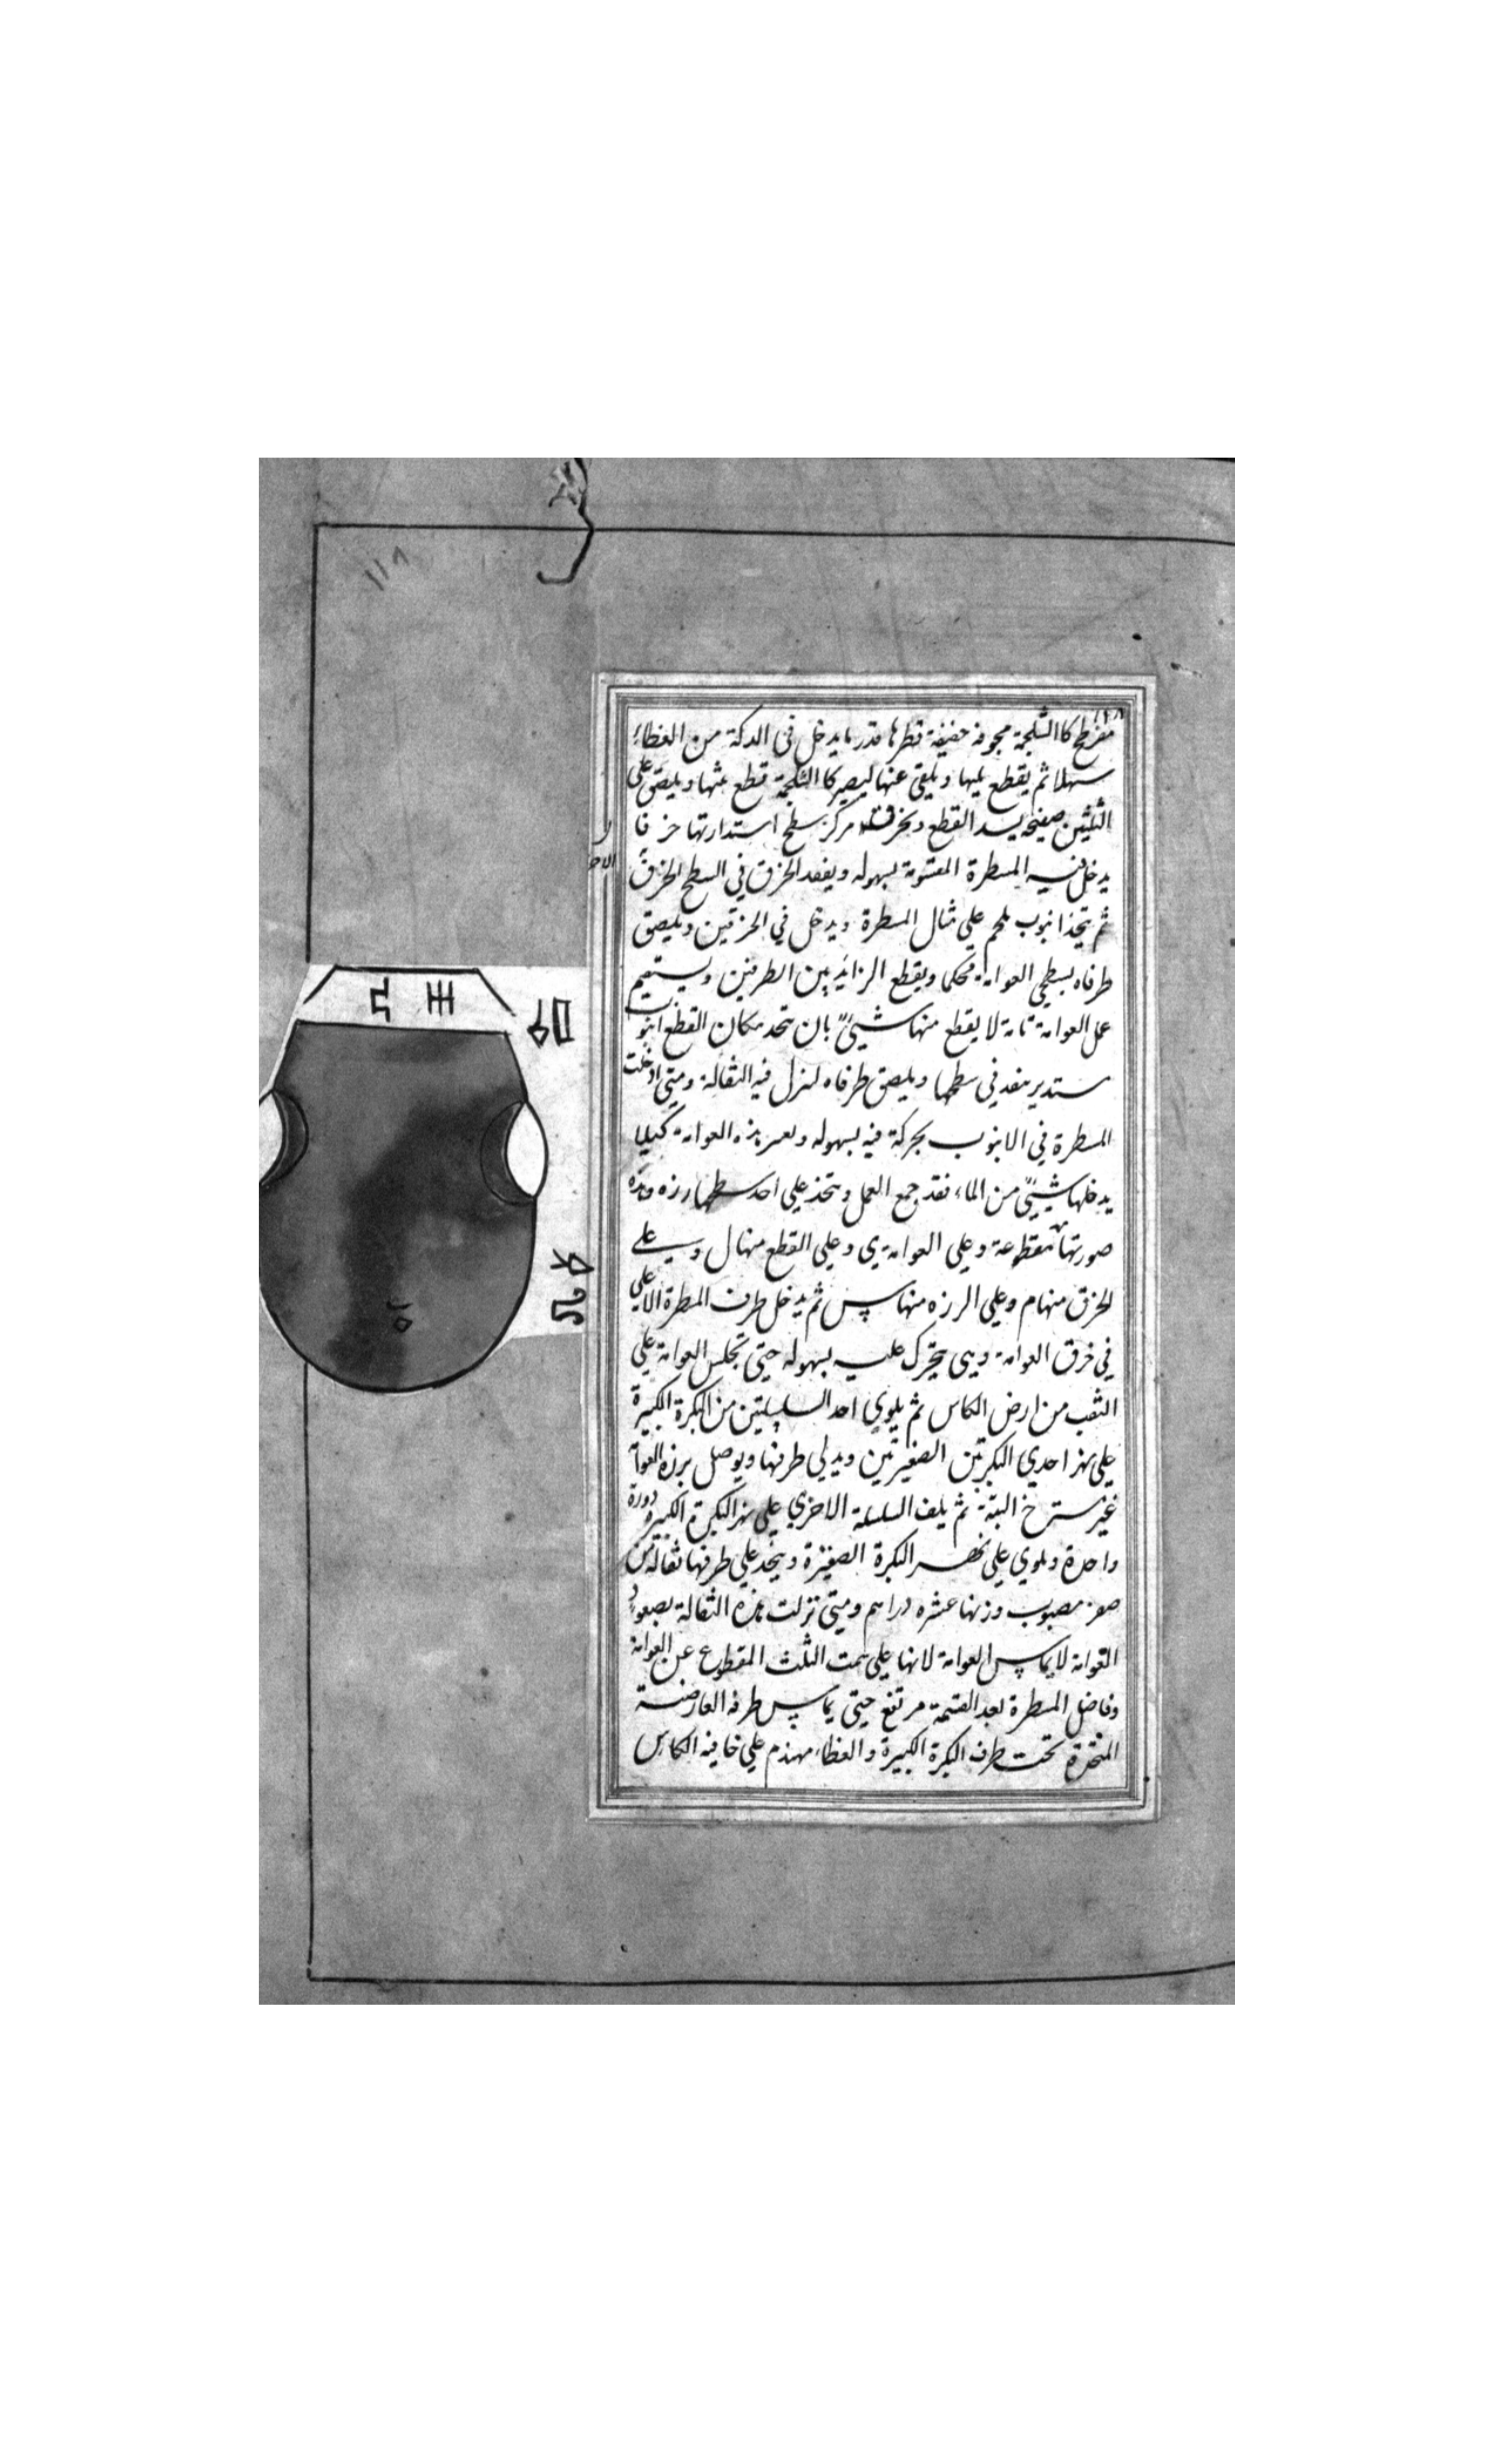 ١١٨
١١٨
مفرطح كالثلجمة مجوفة خفيفة قطرها قدر ما يدخل في الدكة من الغطاء
سهلا ثم يقطع ثلثها ويلقى عنها ليصير كالثلجمة قطع ثلثها ويلصق على
الثلثين صفيحة يسد القطع ويخرق مركز سطح استدارتها خرقا
يدخل فيه المسطرة المقسومة بسهوله وينفد الخرق في السطح
ثم يتخذ انبوب ملحم على مثال المسطرة ويدخل في الخرقين ويلصق
طرفاه بسطحي العوامة محكما ويقطع الزائد بين الطرفين ويستقيم
عمل العوامة تامة لا يقطع منها شيئ بان يتخد مكان القطع انبو
مستدير ينفد في سطحها ويلصق طرفاه لينزل فيه الثقالة ومتى ادخلت
المسطرة في الانبوب بحركة فيه بسهوله هذه العوامة كيلا
يدخلها شيئ من الماء فقد جمع العمل ويتخذ على احد سطحها رزه وهذه
صورتها مقطوعة وعلى العوامة ي وعلى القطع منها ل وعلى
الخرق منها م وعلى الرزه منها س ثم يدخل طرف المسطرة الاعلى
في خرق العوامة وهي تتحرك عليه بسهوله حتى تجلس العوامة على
الثقب من ارض الكاس ثم يلوي احد السلسلتين من البكرة الكبيرة
على نهر احدي البكرتين الصغيرتين ويدلي طرفها ويوصل برزه العوامة
غير مسترخ البتة ثم يلف السلسلة الاخري على نهر البكرة الكبيرة دورة
واحدة ويلوي على نهر البكرة الصغيرة ويتخد على طرفها ثقالة من
صفر مصبوب وزنها عشره دراهم ومتى نزلت هذه الثقالة بصعود
العوامة لا يماس العوامة لانها على سمت الثلث المقطوع عن العوامة
وفاضل المسطرة بعد القسمة مرتفع حتى يماس طرفه العارضة
المتخذة تحت طرف البكرة الكبيرة والغطاء مهندم على حافية الكاس